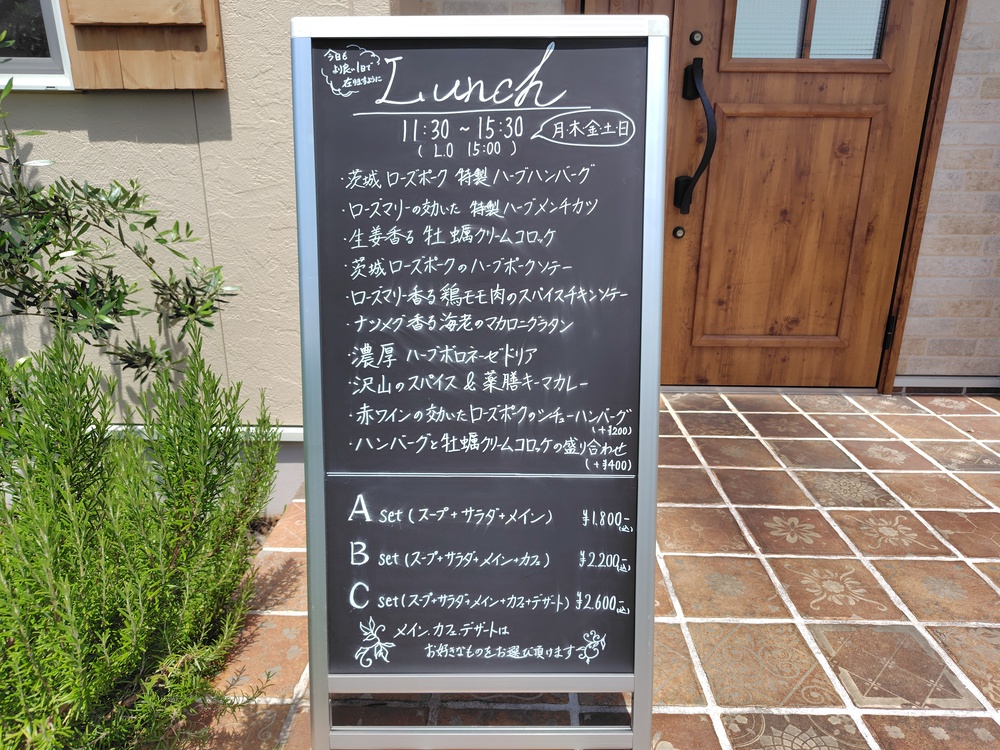 今日も
より良い1日で
在りますように
Lunch
11:30 ~ 15:30
月・木・金土・日
( L.O 15:00 )
・茨城 ローズポーク 特製 ハーブハンバーグ
・ローズマリーの効いた 特製 ハーブメンチカツ
・生姜香る 牡蠣クリームコロッケ
・茨城 ローズポークのハーブポークソテー
・ローズマリー香る鶏モモ肉のスパイスチキンソテー
・ナツメグ香る海老のマカロニグラタン
・濃厚 ハーブボロネーゼドリア
・沢山のスパイス & 薬膳キーマカレー
・赤ワインの効いたローズポークのシチューハンバーグ
(+¥200)
・ハンバーグと牡蠣クリームコロッケの盛り合わせ
(+¥400)
A set (スープ+サラダ+メイン) ¥1.800-(込)
B set (スープ+サラダ+メイン+カフェ) ¥2.200-(込)
C set (スープ+サラダ+メイン+カフェ+デザート) ¥2.600-(込)
メイン.カフェ.デザートは
お好きなものをお選び頂けます